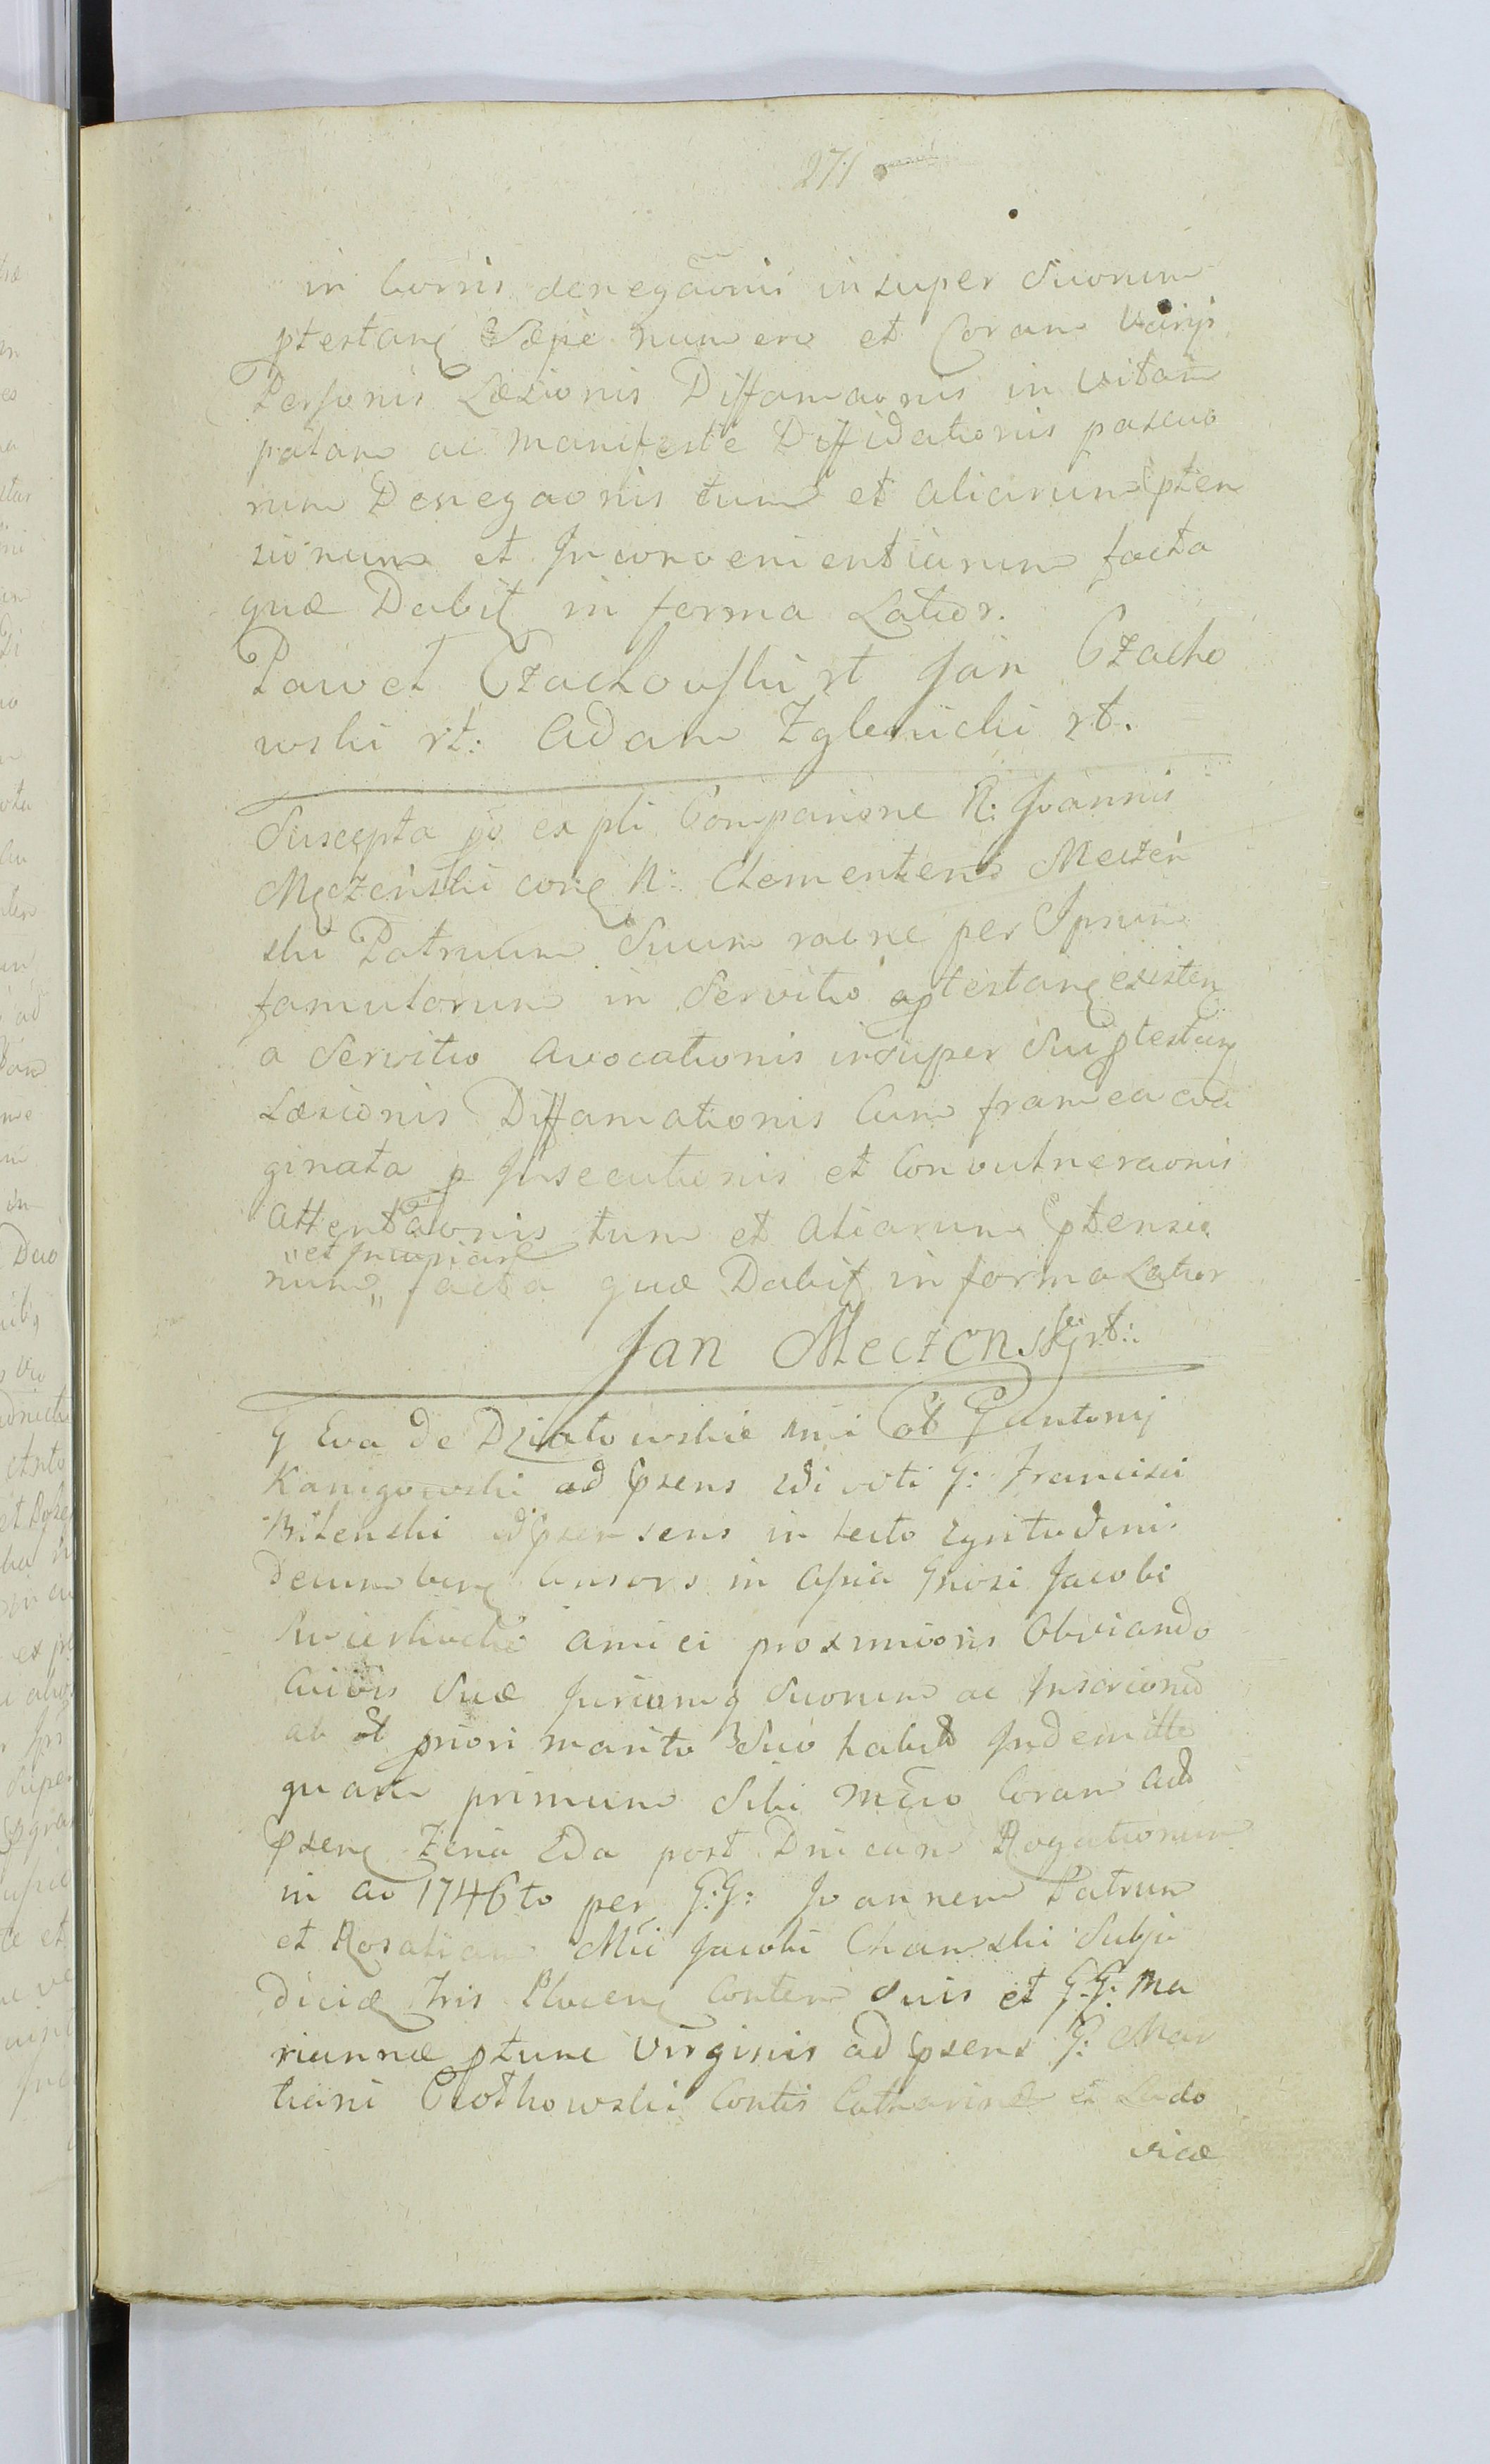 271
in bonis denegaonis insuper Suorum
ptestan Sæpè numero et Coram Varijs
Personis Læsionis Diffamaonis in Vitam
palam ac manifestè Diffidationis pascuo
rum Denegaonis tum et aliarum pten
sionum et Inconvenientiarum facta
quæ Dabit in forma Latior.
Paweł Czachowski rt Jan Czacho
wski rt: Adam Zglenicki rt.
Suscepta pō ex pti Comparione N: Joannis
Męczeński con N: Clementem Męczeń
ski Patruum Suum raōne per Ipsum
famulorum in Servitio ptestan existen
a Servitio avocationis insuper Sui ptestan
Læsionis Diffamationis Cum framea eva
ginata p Insecutionis et Convulneraonis
attentaonis tum et aliarum ptensio
"et Injuriar
num" facta quæ Dabit in forma Latior
Jan Meczenski rt:
G Eva de Dziatowskie imi ol G Antonij
Kanigowski ad psens 2di voti G: Francisci
Bilenski ad psens in lecto Egritudinis
Decumben Consors in assia Gnosi Jacobi
Swierlicki amici proximioris Obviando
Suæ Juriumq Suorum ac Inscrionū
ab ol priori marito Suo habit Indemitte
quam primum Sibi Coram act
psen Feria 2da post Dnicam Rogationum
in ao 1746to per G:G: Joannem Patrum
et Rosaliam Mci Jacobi Chamski Subju
dicis Tris Plocen Contem Suis et G:G: Ma
riannæ ptunc Virginis ad psens G: Mar
tiani Clothowski Contis Catharinæ et Ludo
vicæ